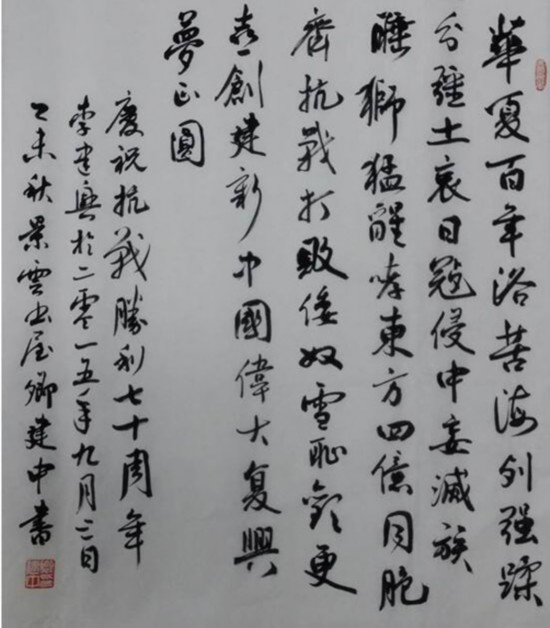 華夏百年浴苦海列强蹂
分疆土哀日寇侵中妄滅族
睡獅猛醒哮東方四億同胞
齊抗戰打敗倭奴雪耻更
喜創建新中國偉大复興
夢正圓
慶祝抗戰勝利七十周年
李建興於二零一五年九月三日
乙未秋景雲书屋卿建中書